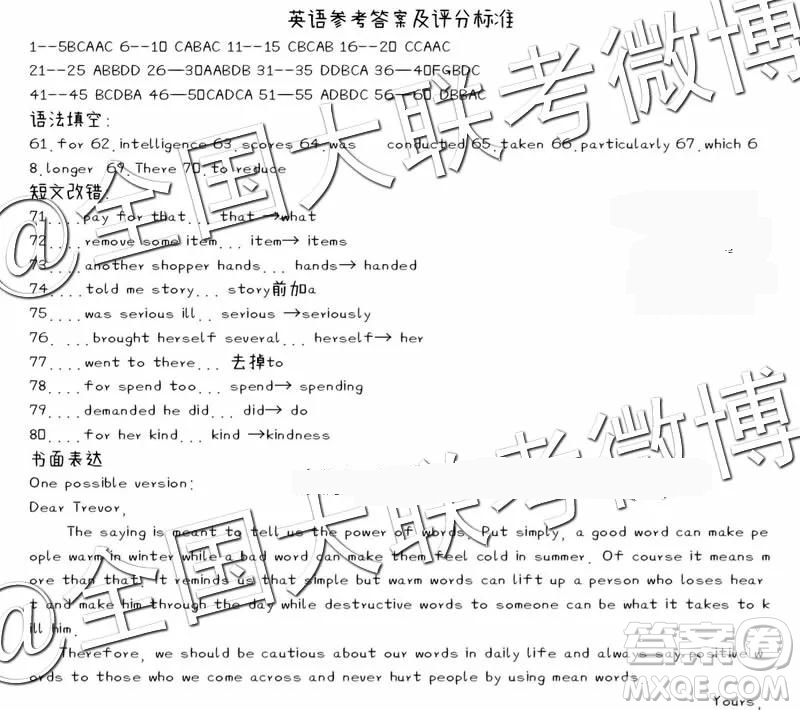 英语参考答案及评分标准
1--5BCAAC 6--10 CABAC 11--15 CBCAB 16--20 CCAAC
21--25 ABBDD 26—30AABDB 31--35 DDBCA 36—40FGBDC
41--45 BCDBA 46—50CADCA 51—55 ADBDC 56—60 DBBAC
语法填空:
61.for 62.intelligence 63.scores 64.was conducted 65.taken 66.particularly 67.which 6
8.longer 69.There 70.to reduce
短文改错:
71....pay for that... that →what
72....remove some item... item→ items
73....another shopper hands... hands→ handed
74....told me story... story前加a
75....was serious ill.. serious →seriously
76. ...brought herself several... herself→ her
77....went to there... 去掉to
78....for spend too... spend→ spending
79....demanded he did... did→ do
80....for her kind... kind →kindness
书面表达
One possible version:
Dear Trevor,
The saying is meant to tell us the power of words. Put simply, a good word can make pe
ople warm in winter while a bad word can make them feel cold in summer. Of course it means m
ore than that. It reminds us that simple but warm words can lift up a person who loses hear
t and make him through the day while destructive words to someone can be what it takes to k
ill him.
Therefore, we should be cautious about our words in daily life and always say positive w
ords to those who we come across and never hurt people by using mean words.
Yours,
@全国大联考微博
@全国大联考微博
答案圈
MXQE.COM